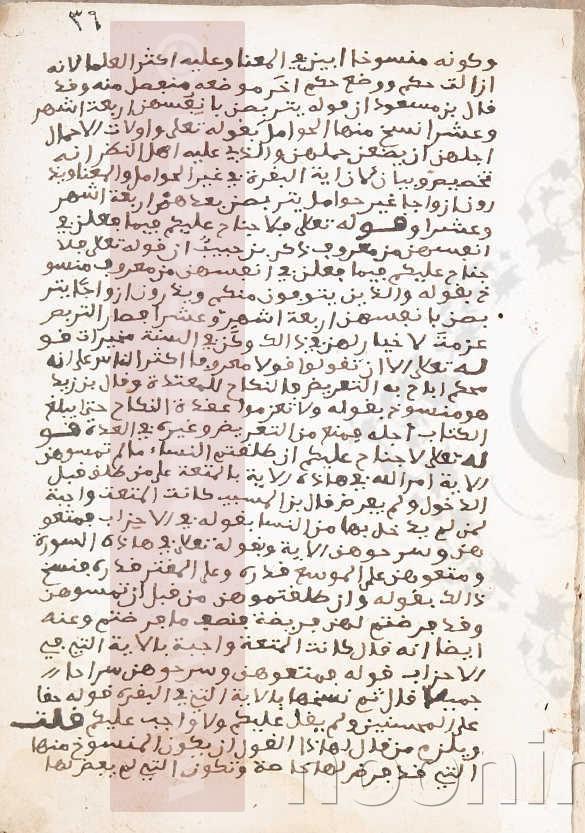 ٣٩
وكونه منسوخا ابين في المعنا وعليه اكثر العلما لانه
ازالت حكم ووضع حكم اخر موضعه منفصل منه وقد
قال بن مسعود ان قوله يتربصن بانفسهن اربعة اشهر
وعشرا نسخ منها الحوامل بقوله تعلى واولات الاحمال
اجلهن ان يضعن حملهن والذي عليه اهل النظر انه
تخصيص وبيان لان اية البقرة في غير الحوامل والمعنا ويذ
رون ازواجا غير حوامل يتربصن بعدهم اربعة اشهر
وعشرا وقوله تعلى فلا جناح عليكم فيما فعلن في
انفسهن من معروف ذكر بن حبيب ان قوله تعلى فلا
جناح عليكم فيما فعلن في انفسهن من معروف منسو
خ بقوله والذين يتوفون منكم ويذرون ازواجا يتر
بصن بانفسهن اربعة اشهر وعشرا فصار التربص
عزمة لا خيار لهن في ذالك وكن في السنة مخيرات قو
له تعلى الا ان تقولوا قولا معروفا اكثر الناس على انه
محكم اباح به التعريض بالنكاح للمعتدة وقال بن زيد
هو منسوخ بقوله ولا تعزموا عقدة النكاح حتى يبلغ
الكتاب اجله فمنع من التعريض وغيره في العدة قو
له تعلى لا جناح عليكم ان طلقتم النساء ما لم تمسوهن
الاية امر الله في هاذه الاية بالمتعة على من طلق قبل
الدخول ولم يفرض قال بن المسيب كانت المتعة واجبة
لمن لم يدخل بها من النسا بقوله في الاحزاب فمتعو
هن وسرحوهن الاية وبقوله تعلى في هاذه السورة
ومتعوهن على الموسع قدره وعلى المقتر قدره فنسخ
ذالك بقوله وان طلقتموهن من قبل ان تمسوهن
وقد فرضتم لهن فريضة فنصف ما فرضتم وعنه
ايضا انه قال كانت المتعة واجبة بالاية التي في
الاحزاب قوله فمتعوهن وسرحوهن سراحا
جميلا قال ثم نسختها بالاية التي في البقرة قوله حقا
على المحسنين ولم يقل عليكم ولا واجب عليكم قلت
ويلزم من قال لهاذا القول ان يكون المنسوخ منها
التي قد فرض لها خاصة وتكون التي لم يفرض لها
noonin